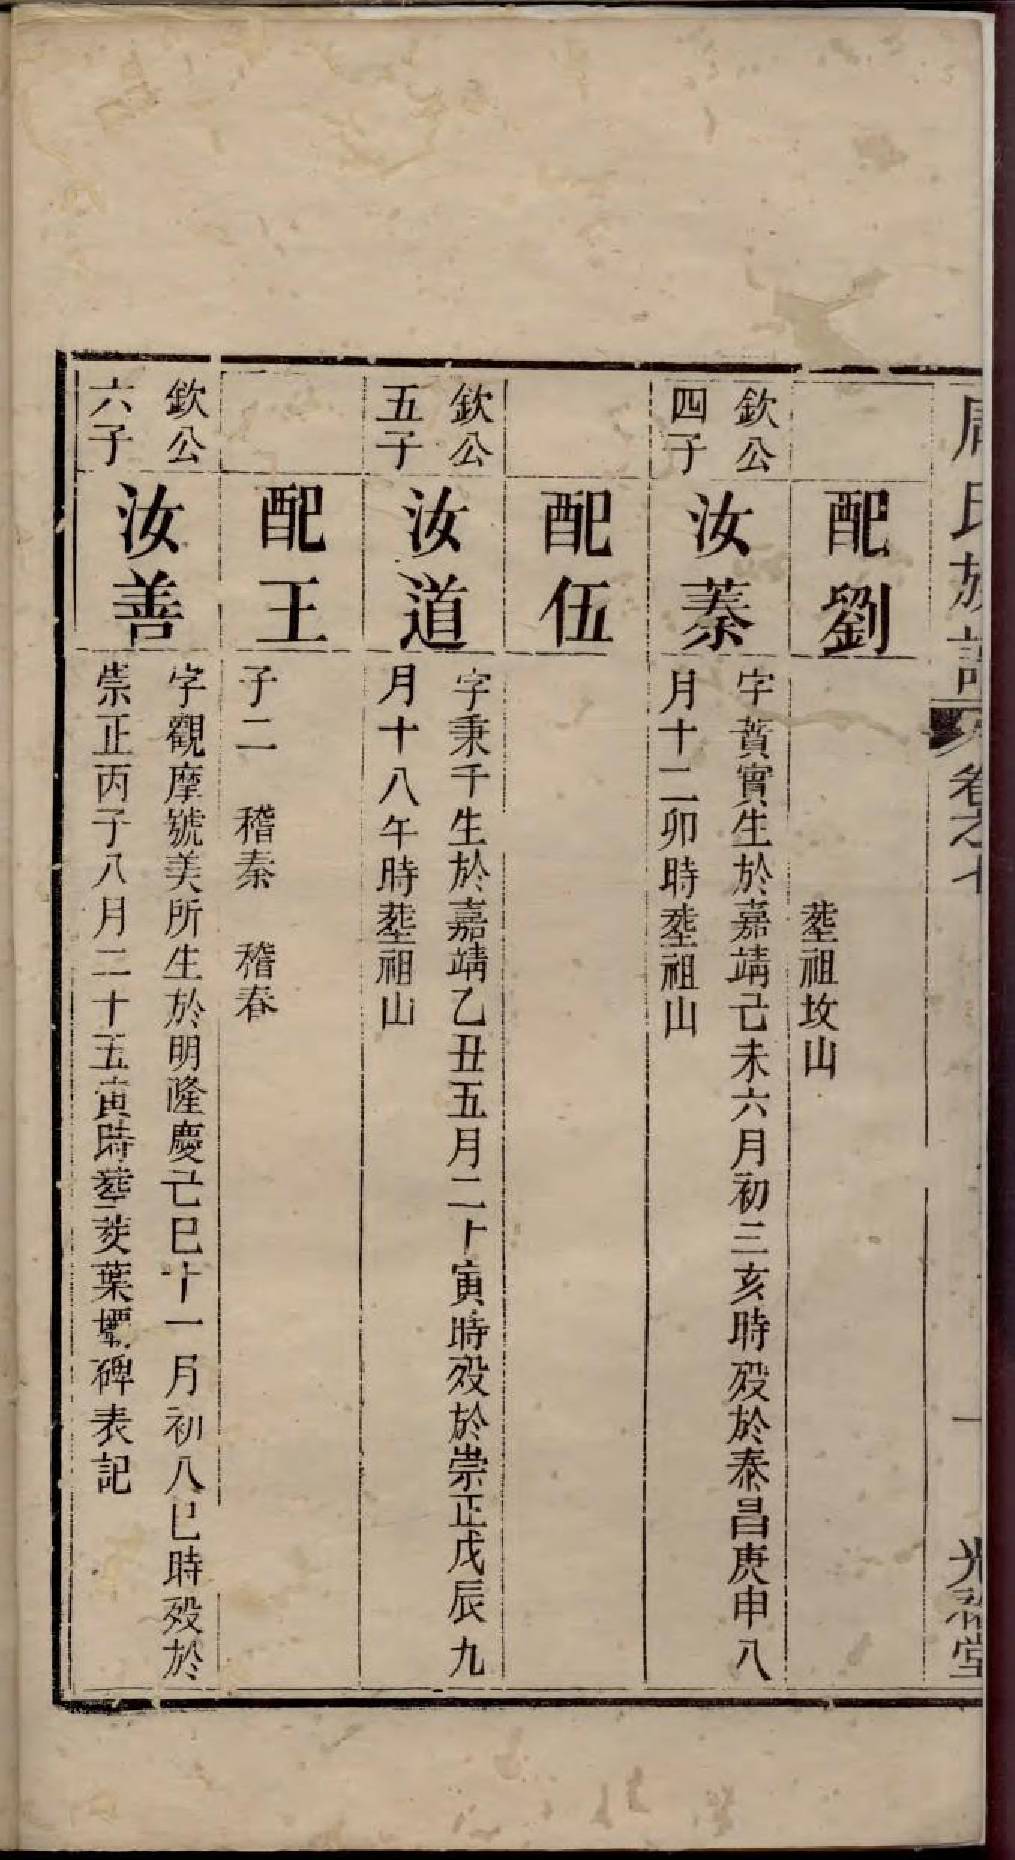 周氏族譜 卷之七 一 光裕堂
配劉
塟祖坟山
欽公
四子
汝蓁
字蕡實生於嘉靖己未六月初三亥時歿於泰昌庚申八
月十二卯時塟祖山
配伍
欽公
五子
汝道
字秉千生於嘉靖乙丑五月二十寅時歿於崇正戊辰九
月十八午時塟祖山
配王
子二 稽秦 稽春
欽公
六子
汝善
字觀摩號美所生於明隆慶己巳十一月初八巳時歿於
崇正丙子八月二十五寅時塟茭葉壜碑表記